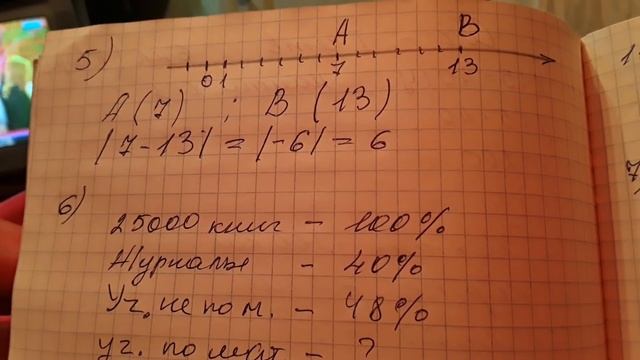 5)
A B
0 1 7 13
A(7) ; B(13)
|7-13| = |-6| = 6
6)
25000 книг - 100%
Журналы - 40%
Уч. не по м. - 48%
уч. по мат - ?
1
7